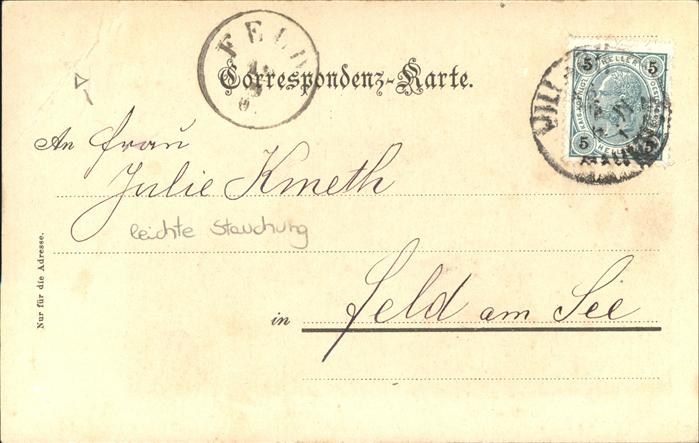 FELD
Correspondenz-Karte.
5 HELLER 5
5 HELLER 5
An Frau
Julie Kmeth
leichte Stauchung
in Feld am See
Nur für die Adresse.